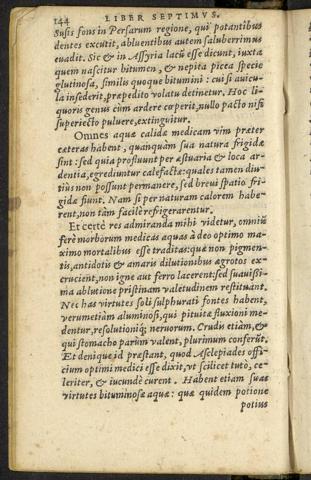 144 LIBER SEPTIMVS.
Susis fons in Persarum regione, qui potantibus
dentes excutit, abluentibus autem saluberrimus
euadit. Sic & in Assyria lacū esse dicunt, iuxta
quem nascitur bitumen, & nepita picea specie
glutinosa, similis quoque bitumini : cui si auicu-
la insederit, præpedito volatu detinetur. Hoc li-
quoris genus cùm ardere cœperit, nullo pacto nisi
superiecto puluere, extinguitur.
Omnes aquæ calidæ medicam vim præter
cæteras habent, quanquàm sua natura frigidæ
sint : sed quia profluunt per æstuaria & loca ar-
dentia, egrediuntur calefactæ: quales tamen diu-
tiùs non possunt permanere, sed breui spatio fri-
gidæ fiunt. Nam si per naturam calorem habe-
rent, non tàm facilè refrigerarentur.
Et certè res admiranda mihi videtur, omniū
ferè morborum medicas aquas à deo optimo ma-
ximo mortalibus esse traditas: quæ non pigmen-
tis, antidotis & amaris dilutionibus ægrotos ex-
crucient, non igne aut ferro lacerent: sed suauissi-
ma ablutione pristinam valetudinem restituant.
Nec has virtutes soli sulphurati fontes habent,
verumetiàm aluminosi, qui pituitæ fluxioni me-
dentur, resolutioniq; neruorum. Crudis etiàm, &
qui stomacho parùm valent, plurimùm conferūt.
Et denique id præstant, quod Asclepiades offi-
cium optimi medici esse dixit, vt scilicet tutò, ce-
leriter, & iucundè curent. Habent etiam suas
virtutes bituminosæ aquæ : quæ quidem potione
potius